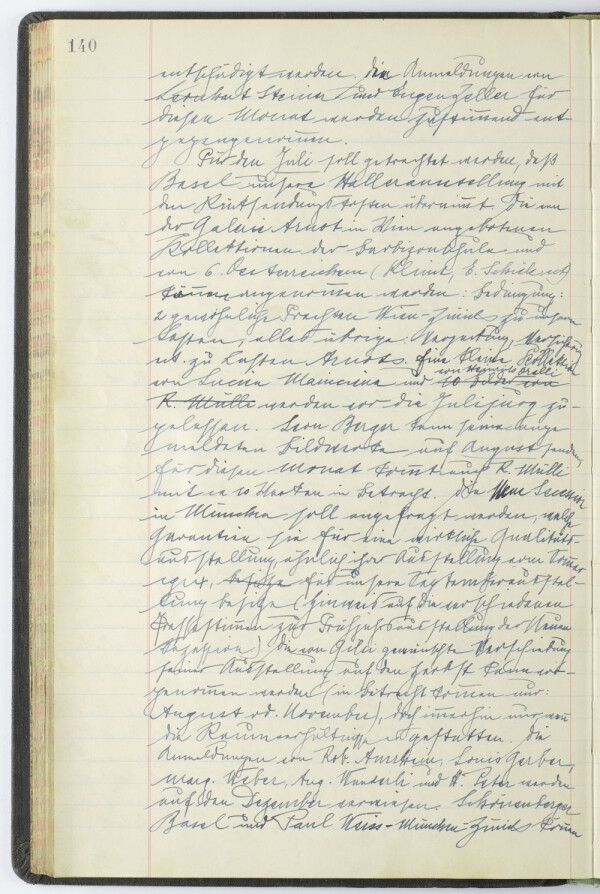 140
entschädigt werden. Die Anmeldungen von
Leonhard Steiner und Eugen Zeller für
diesen Monat werden zustimmend ent-
gegengenommen.
Für den Juli soll getrachtet werden, daß
Basel unsere Hallerausstellung mit
den Rücksendungskosten übernimmt. Die von
der Galerie Arnot in Wien angebotenen
Kollektionen der Barbizonschule und
von 6 Oesterreichern (Klimt, E. Schiele etc)
können angenommen werden: Bedingung:
2 gewöhnliche Frachten Wien-Zürich zu unsern
Lasten, alles übrige: Verzollung, Versicherung
etc. zu Lasten Arnots. Eine kleine Kollektion
von Heinrich Orelli
von Lucca Mancina und 10 Bilder von
R. Mülli werden vor die Julijury zu-
gelassen. Leon Berger kann seine ange-
meldeten Bildwerke auf August senden,
für diesen Monat kommt auch R. Mülli
mit ca 10 Werken in Betracht. Die Neue Secession
in München soll angefragt werden, welche
Garantien sie für eine wirkliche Qualitäts-
ausstellung, ähnlich ihrer Ausstellung vom Sommer
1914, für unsere Septemberausstel-
lung besitze (Hinweis auf die verschiedenen
Pressestimmen zur Frühjahrsausstellung der Neuen
Sezession) Die von Gilsi gewünschte Verschiebung
seiner Ausstellung auf den Herbst kann vor-
genommen werden (in Betracht kommen nur:
August od. November), doch immerhin nur wenn
die Raumverhältnisse es gestatten. Die
Anmeldungen von Rob. Amrhein, Louis Gerber,
Marg. Weber, Aug. Wanderli und H. Peter werden
auf den Dezember verwiesen. Schönenberger
Basel und Paul Weiss-München-Zürich können